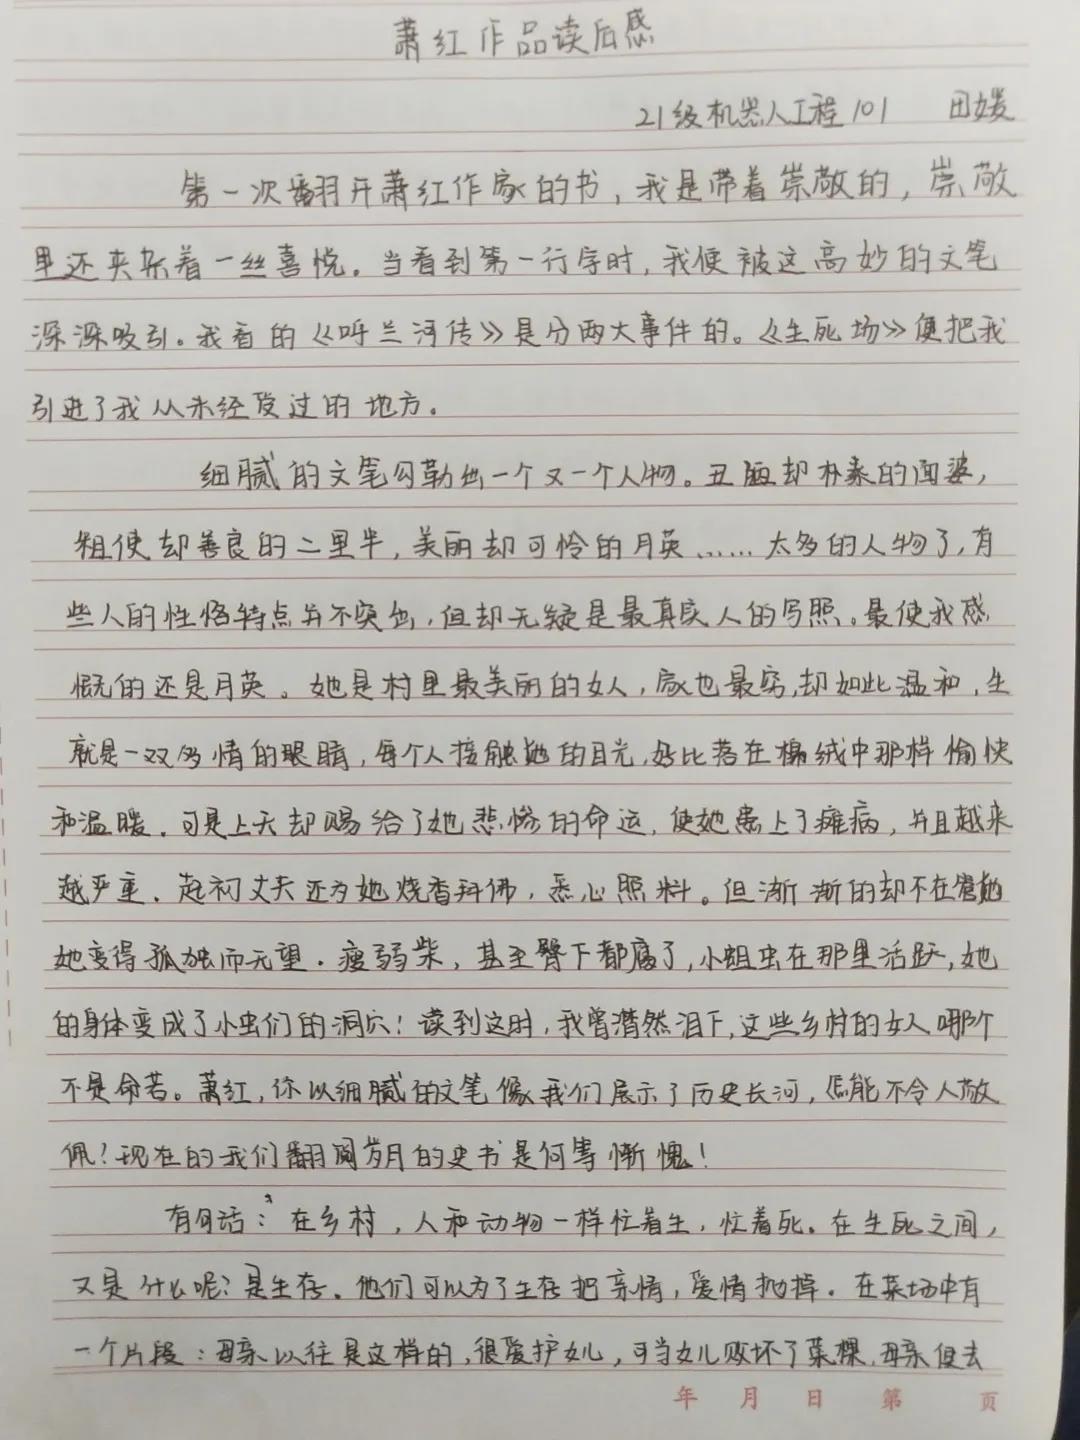 萧红作品读后感
21级机器人工程101 田媛
第一次翻开萧红作家的书，我是带着崇敬的，崇敬
里还夹杂着一丝喜悦。当看到第一行字时，我便被这高妙的文笔
深深吸引。我看的《呼兰河传》是分两大事件的。《生死场》便把我
引进了我从未经受过的地方。
细腻的文笔勾勒出一个又一个人物。丑陋却朴素的面婆，
粗使却善良的二里半，美丽却可怜的月英……太多的人物了，有
些人的性格特点并不突出，但却无疑是最真实人的写照。最使我感
慨的还是月英。她是村里最美丽的女人，家也最穷，却如此温和，生
就是一双多情的眼睛，每个人接触她的目光，好比落在棉绒中那样愉快
和温暖。可是上天却赐给了她悲惨的命运，使她患上了瘫病，并且越来
越严重。起初丈夫还为她烧香拜佛，悉心照料。但渐渐的却不在管她
她变得孤独而无望。瘦弱柴，甚至臀下都腐了，小蛆虫在那里活跃，她
的身体变成了小虫们的洞穴！读到这时，我曾潸然泪下，这些乡村的女人哪个
不是命苦。萧红，你以细腻的文笔像我们展示了历史长河，怎能不令人敬
佩？现在的我们翻阅岁月的史书是何等惭愧！
有句话：在乡村，人和动物一样忙着生，忙着死。在生死之间，
又是什么呢？是生存。他们可以为了生存把亲情，爱情抛掉。在菜场中有
一个片段：母亲以往是这样的，很爱护女儿，可当女儿败坏了菜棵，母亲便去
年 月 日 第 页